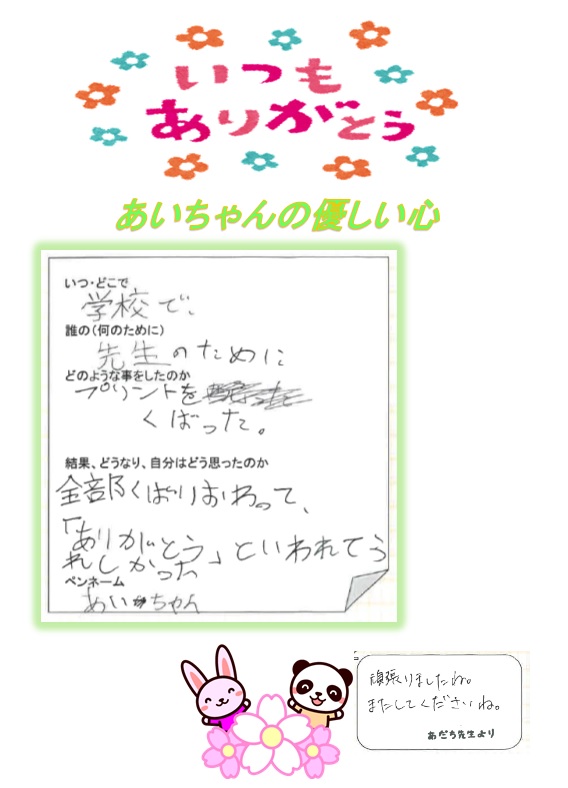 いつも
ありがとう
あいちゃんの優しい心
いつ・どこで
学校で、
誰の(何のために)
先生のために
どのような事をしたのか
プリントを
くばった。
結果、どうなり、自分はどう思ったのか
全部くばりおわって、
「ありがとう」といわれてう
れしかった
ペンネーム
あいちゃん
頑張りましたね。
またしてくださいね。
あだち先生より